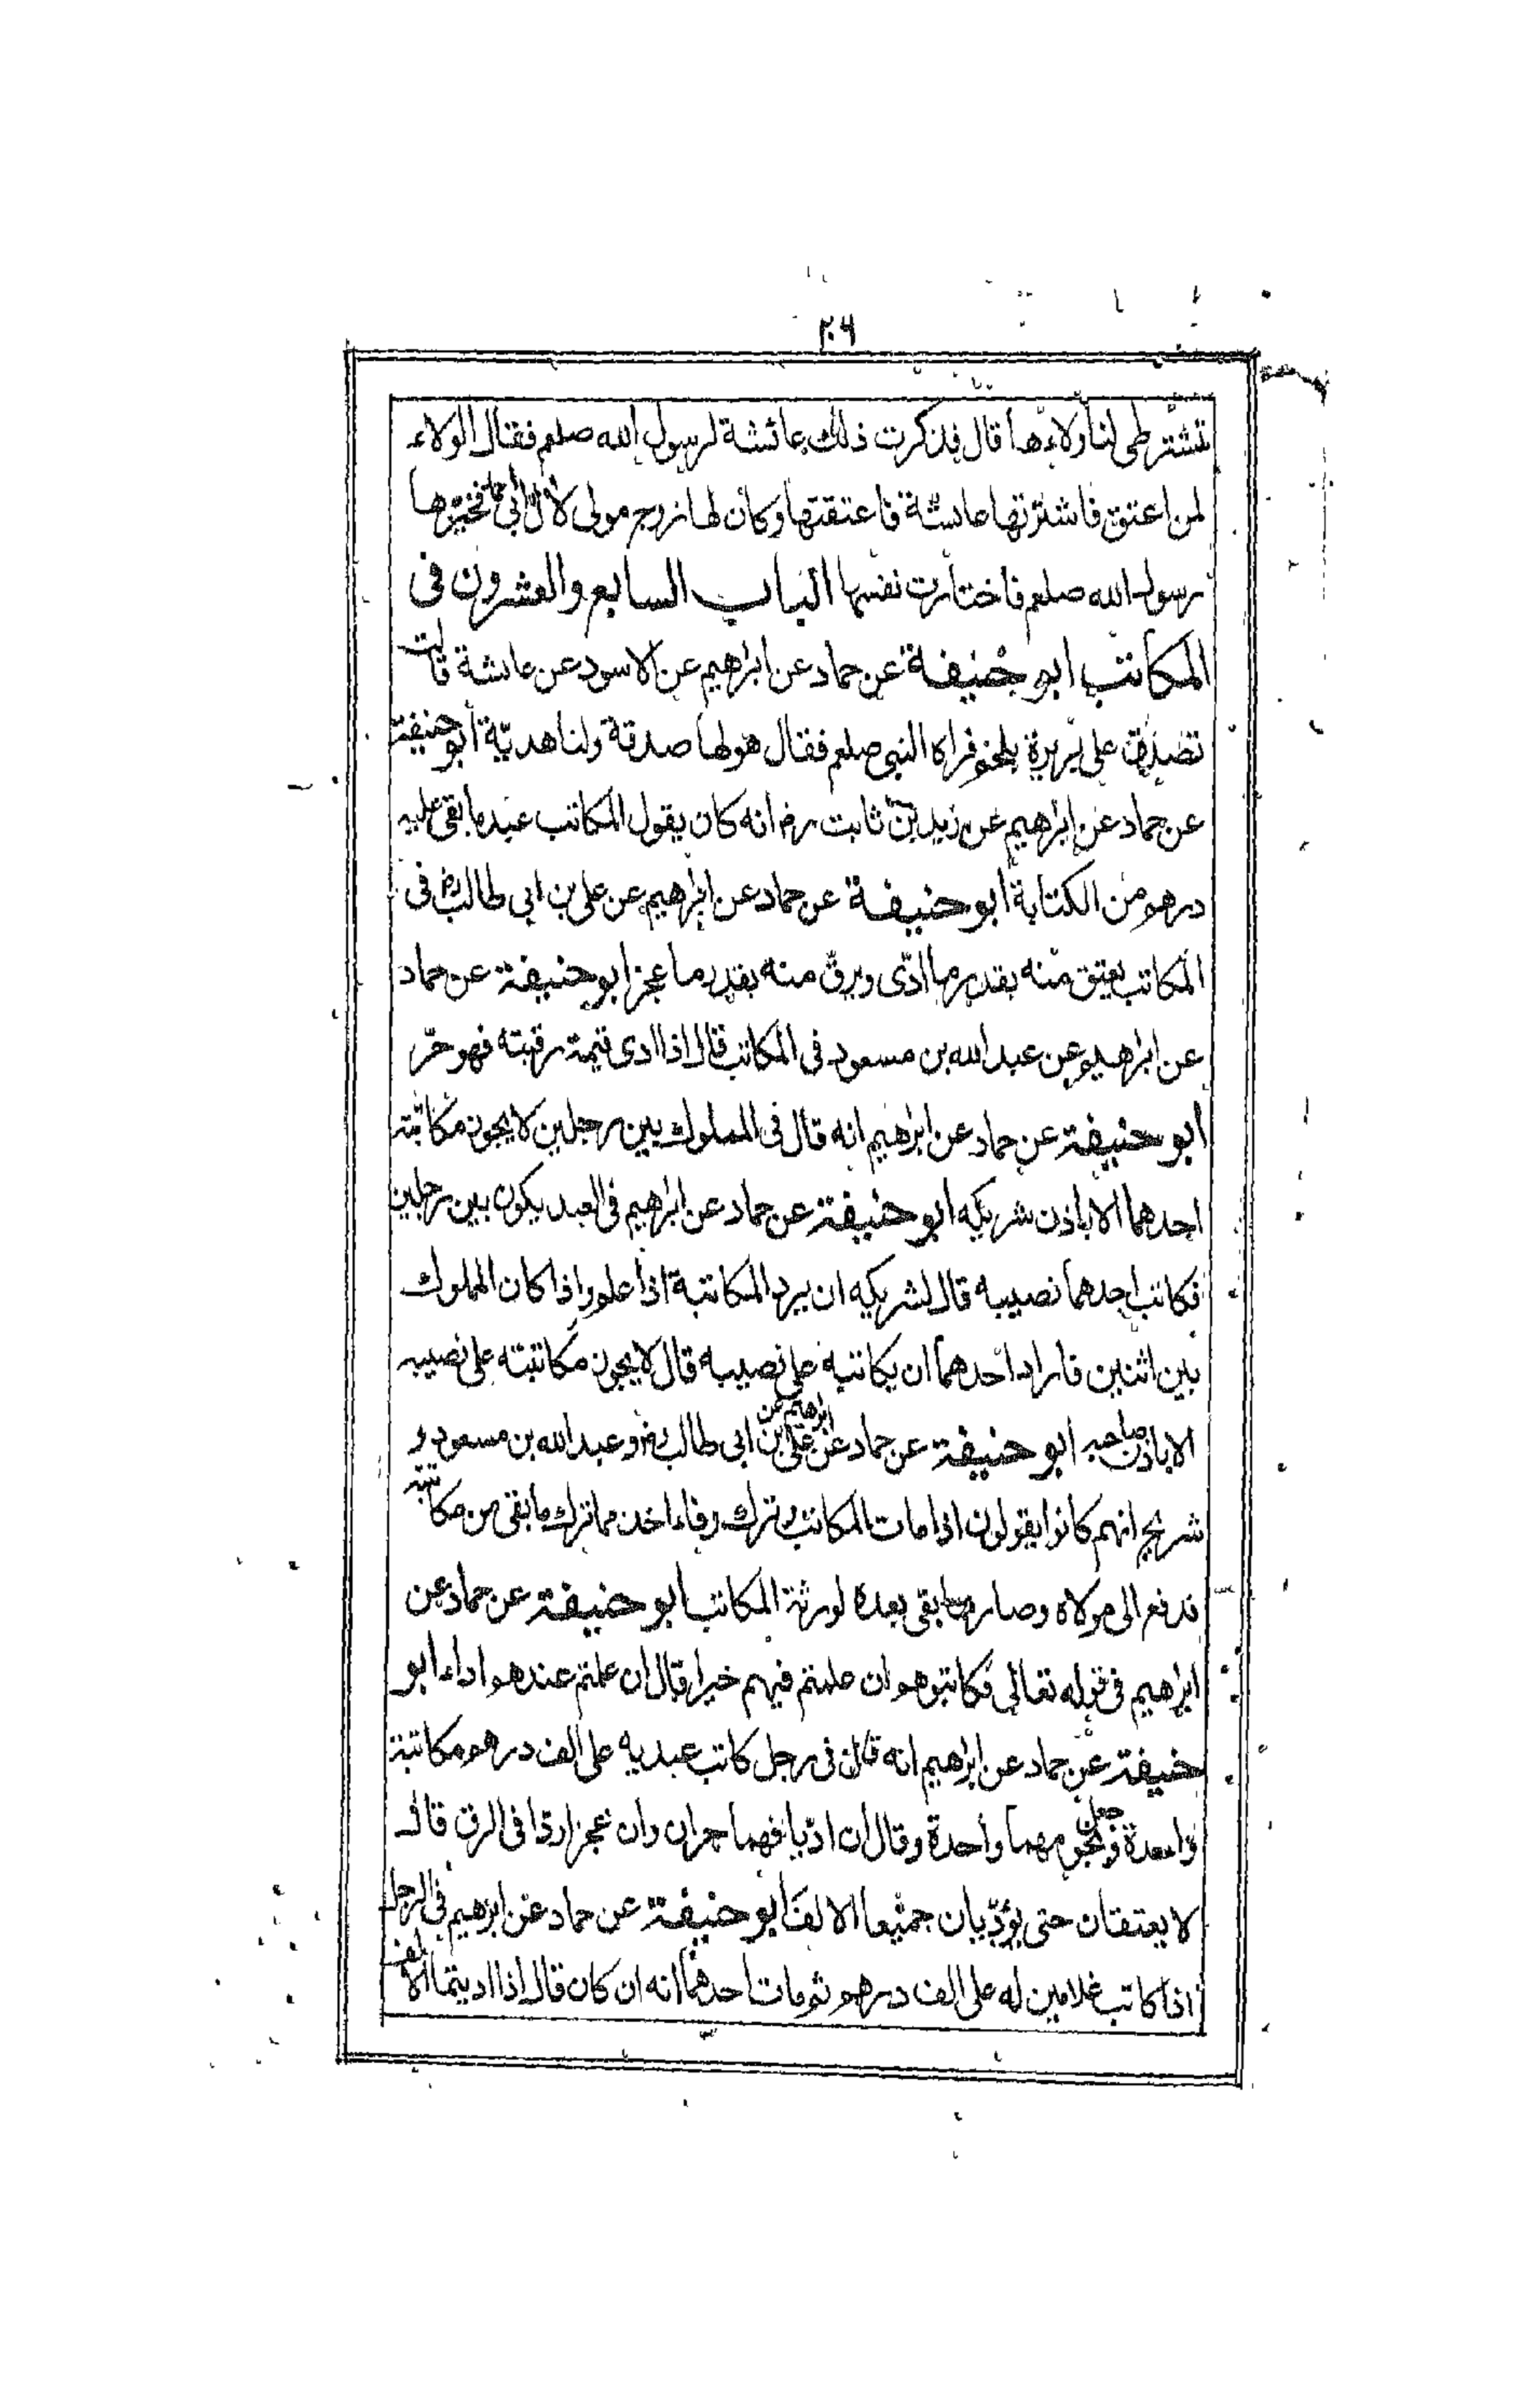 ٢٠٦
تشترطى لنا ولاءها قال فذكرت ذلك عائشة لرسول الله صلعم فقال الولاء
لمن اعتق فاشترتها عايشة فاعتقتها وكان لها زوج مولى لال ابى فخيرها
رسول الله صلعم فاختارت نفسها الباب السابع والعشرون فى
المكاتب ابو حنيفة عن حماد عن ابرهيم عن الاسود عن عايشة قالت
تصدق على بريرة بلحم فراه النبى صلعم فقال هو لها صدقة ولنا هديّة ابو حنيفة
عن حماد عن ابرهيم عن زيد بن ثابت رض انه كان يقول المكاتب عبد ما بقى عليه
درهم من الكتابة ابو حنيفة عن حماد عن ابرهيم عن على بن ابى طالب رض فى
المكاتب يعتق منه بقدر ما ادّى ويرقّ منه بقدر ما عجز ابو حنيفة عن حماد
عن ابراهيم عن عبد الله بن مسعود فى المكاتب قال اذا ادى قيمة رقبته فهو حرّ
ابو حنيفة عن حماد عن ابرهيم انه قال فى المملوك بين رجلين لا يجوز مكاتبة
احدهما الا باذن شريكه ابو حنيفة عن حماد عن ابرهيم فى العبد يكون بين رجلين
فكاتب احدهما نصيبه قال لشريكه ان يرد المكاتبة اذا علم واذا كان المملوك
بين اثنين فاراد احدهما ان يكاتبه على نصيبه قال لا يجوز مكاتبته على نصيبه
الا باذن صاحبه ابو حنيفة عن حماد عن ابرهيم عن على بن ابى طالب رض وعبد الله بن مسعود و
شريح انهم كانوا يقولون اذا مات المكاتب وترك وفاء اخذ مما ترك ما بقى من مكاتبته
فدفع الى مولاه وصار ما بقى بعده لورثة المكاتب ابو حنيفة عن حماد عن
ابرهيم فى قوله تعالى فكاتبوهم ان علمتم فيهم خيرا قال ان علمتم عندهم اداء ابو
حنيفة عن حماد عن ابرهيم انه قال فى رجل كاتب عبديه على الف درهم مكاتبة
واحدة وجعل نجومهما واحدة وقال ان ادّيا فهما حران وان عجزا ردّا فى الرق قال
لا يعتقان حتى يؤدّيان جميعا الالف ابو حنيفة عن حماد عن ابرهيم فى الرجل
اذا كاتب غلامين له على الف درهم ثم مات احدهما انه ان كان قال اذا اديتما الالف